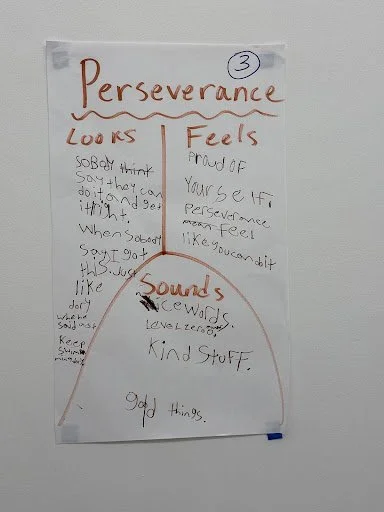 3
Perseverance
Looks
SoBody think
Say they can
do it and get
it right.
When Sobody
Say I got
this. Just
like
dory
where
said Just
Keep
Feels
Proud OF
Yourself.
Perseverance
mean Feel
like you can do it
Sounds
Nice Words.
Level zero.
Kind Stuff.
gold things.